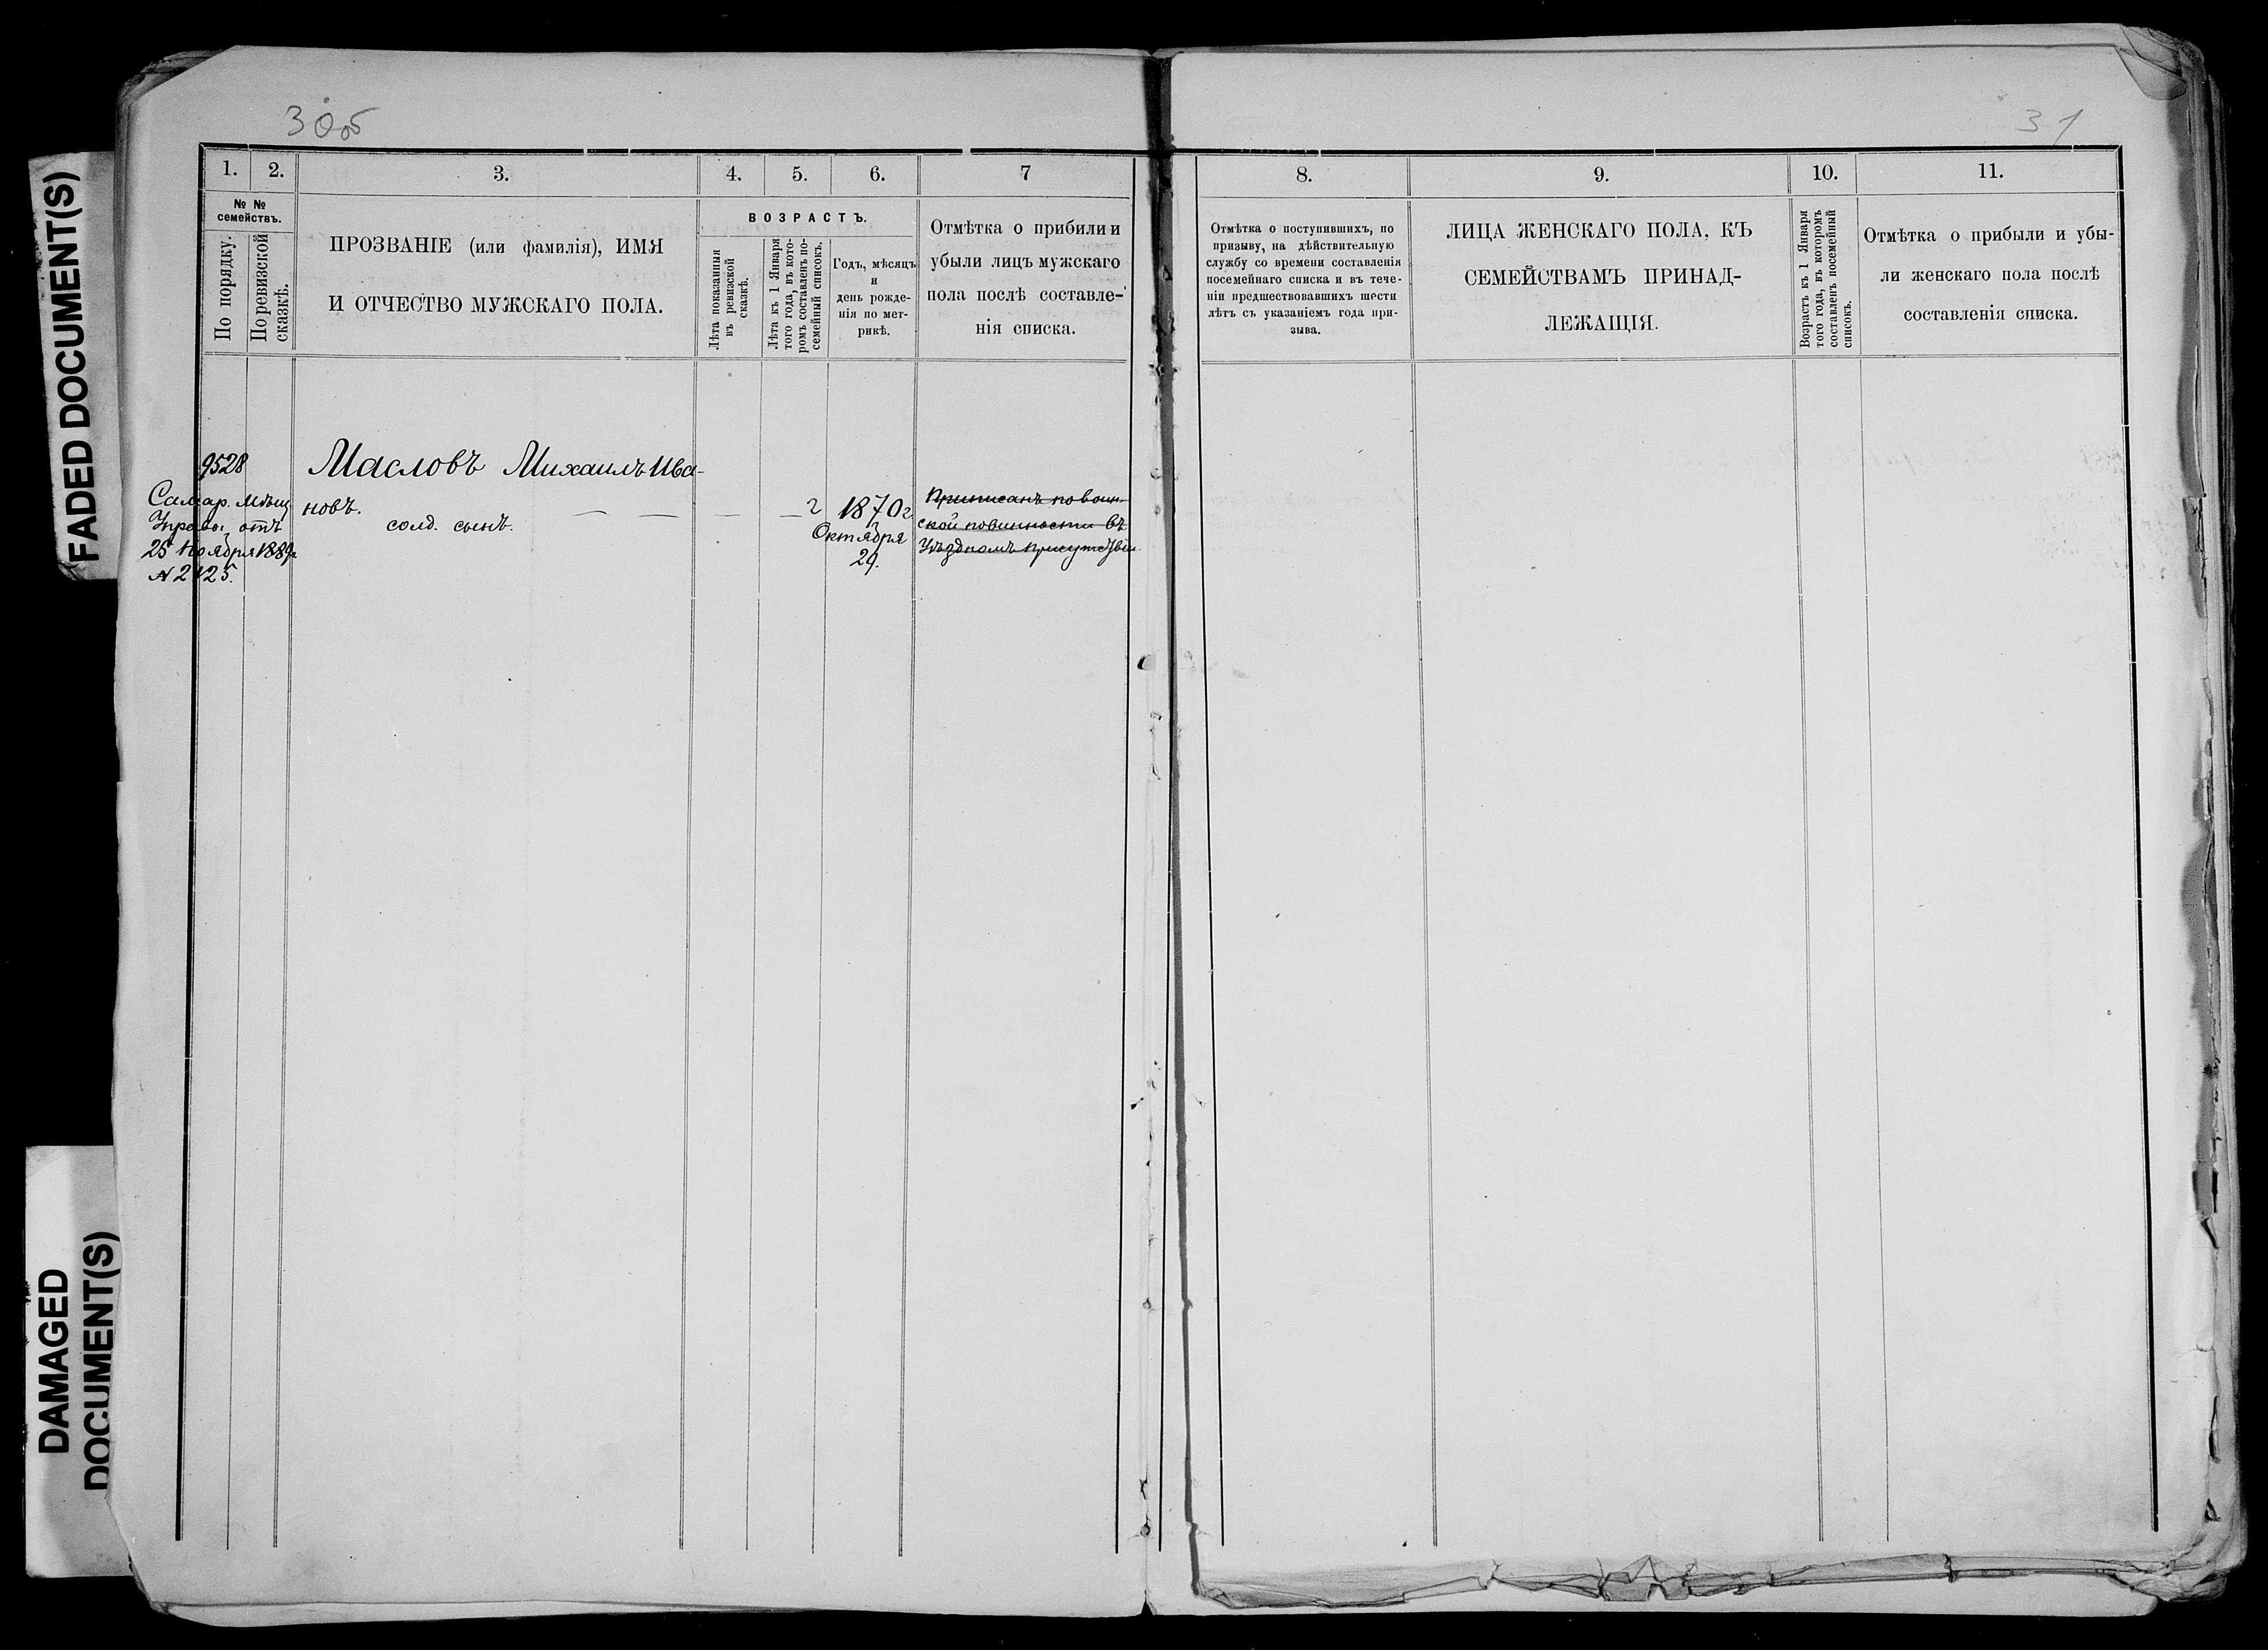 FADED DOCUMENT(S)
DAMAGED
DOCUMENT(S)
30об
31
1.
2.
3.
4.
5.
6.
7
№ №
семействъ.
По порядку.
По ревизской
сказкѣ.
ПРОЗВАНІЕ (или фамилія), ИМЯ
И ОТЧЕСТВО МУЖСКАГО ПОЛА.
ВОЗРАСТЪ.
Лѣта показанныя
въ ревизской
сказкѣ.
Лѣта къ 1 Января
того года, въ кото-
ромъ составленъ по-
семейный списокъ.
Годъ, мѣсяцъ
и
день рожде-
нія по мет-
рикѣ.
Отмѣтка о прибыли и
убыли лицъ мужскаго
пола послѣ составле-
нія списка.
9528
Самар. Мѣщ
Управы отъ
25 Ноября 1889г.
№ 2125.
Масловъ Михаилъ Ива-
новъ.
солд. сынъ.
— — — — г
1870г
Октября
29.
Приписанъ по воин-
ской повинности въ
Уѣздномъ Присутствіи
8.
9.
10.
11.
Отмѣтка о поступившихъ, по
призыву, на дѣйствительную
службу со времени составленія
посемейнаго списка и въ тече-
ніи предшествовавшихъ шести
лѣтъ съ указаніемъ года при-
зыва.
ЛИЦА ЖЕНСКАГО ПОЛА, КЪ
СЕМЕЙСТВАМЪ ПРИНАД-
ЛЕЖАЩІЯ.
Возрастъ къ 1 Января
того года, въ которомъ
составленъ посемейный
списокъ.
Отмѣтка о прибыли и убы-
ли женскаго пола послѣ
составленія списка.